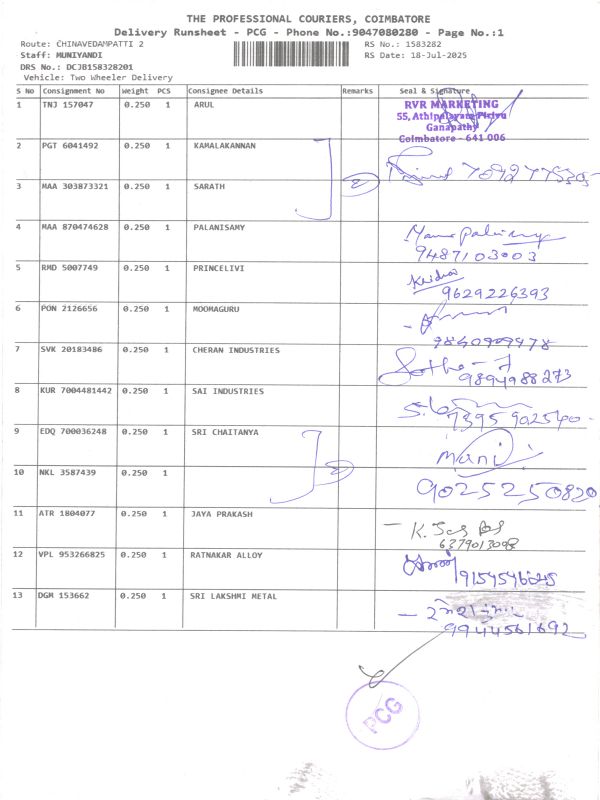 THE PROFESSIONAL COURIERS, COIMBATORE
Delivery Runsheet - PCG - Phone No.:9047080280 - Page No.:1
Route: CHINAVEDAMPATTI 2 RS No.: 1583282
Staff: MUNIYANDI RS Date: 18-Jul-2025
DRS No.: DCJB158328201
Vehicle: Two Wheeler Delivery
S No Consignment No Weight PCS Consignee Details Remarks Seal & Signature
1 TNJ 157047 0.250 1 ARUL RVR MARKETING
55, Athipalayam Pirivu
Ganapathy
Coimbatore - 641 006
2 PGT 6041492 0.250 1 KAMALAKANNAN
3 MAA 303873321 0.250 1 SARATH
4 MAA 870474628 0.250 1 PALANISAMY
9487103003
5 RMD 5007749 0.250 1 PRINCELIVI
9629226393
6 PON 2126656 0.250 1 MOOMAGURU
9840909478
7 SVK 20183486 0.250 1 CHERAN INDUSTRIES
9894988273
8 KUR 7004481442 0.250 1 SAI INDUSTRIES
7395902540
9 EDQ 700036248 0.250 1 SRI CHAITANYA Mani
10 NKL 3587439 0.250 1 9025250820
11 ATR 1804077 0.250 1 JAYA PRAKASH
6379013098
12 VPL 953266825 0.250 1 RATNAKAR ALLOY
9154546245
13 DGM 153662 0.250 1 SRI LAKSHMI METAL
9944561692
PCG